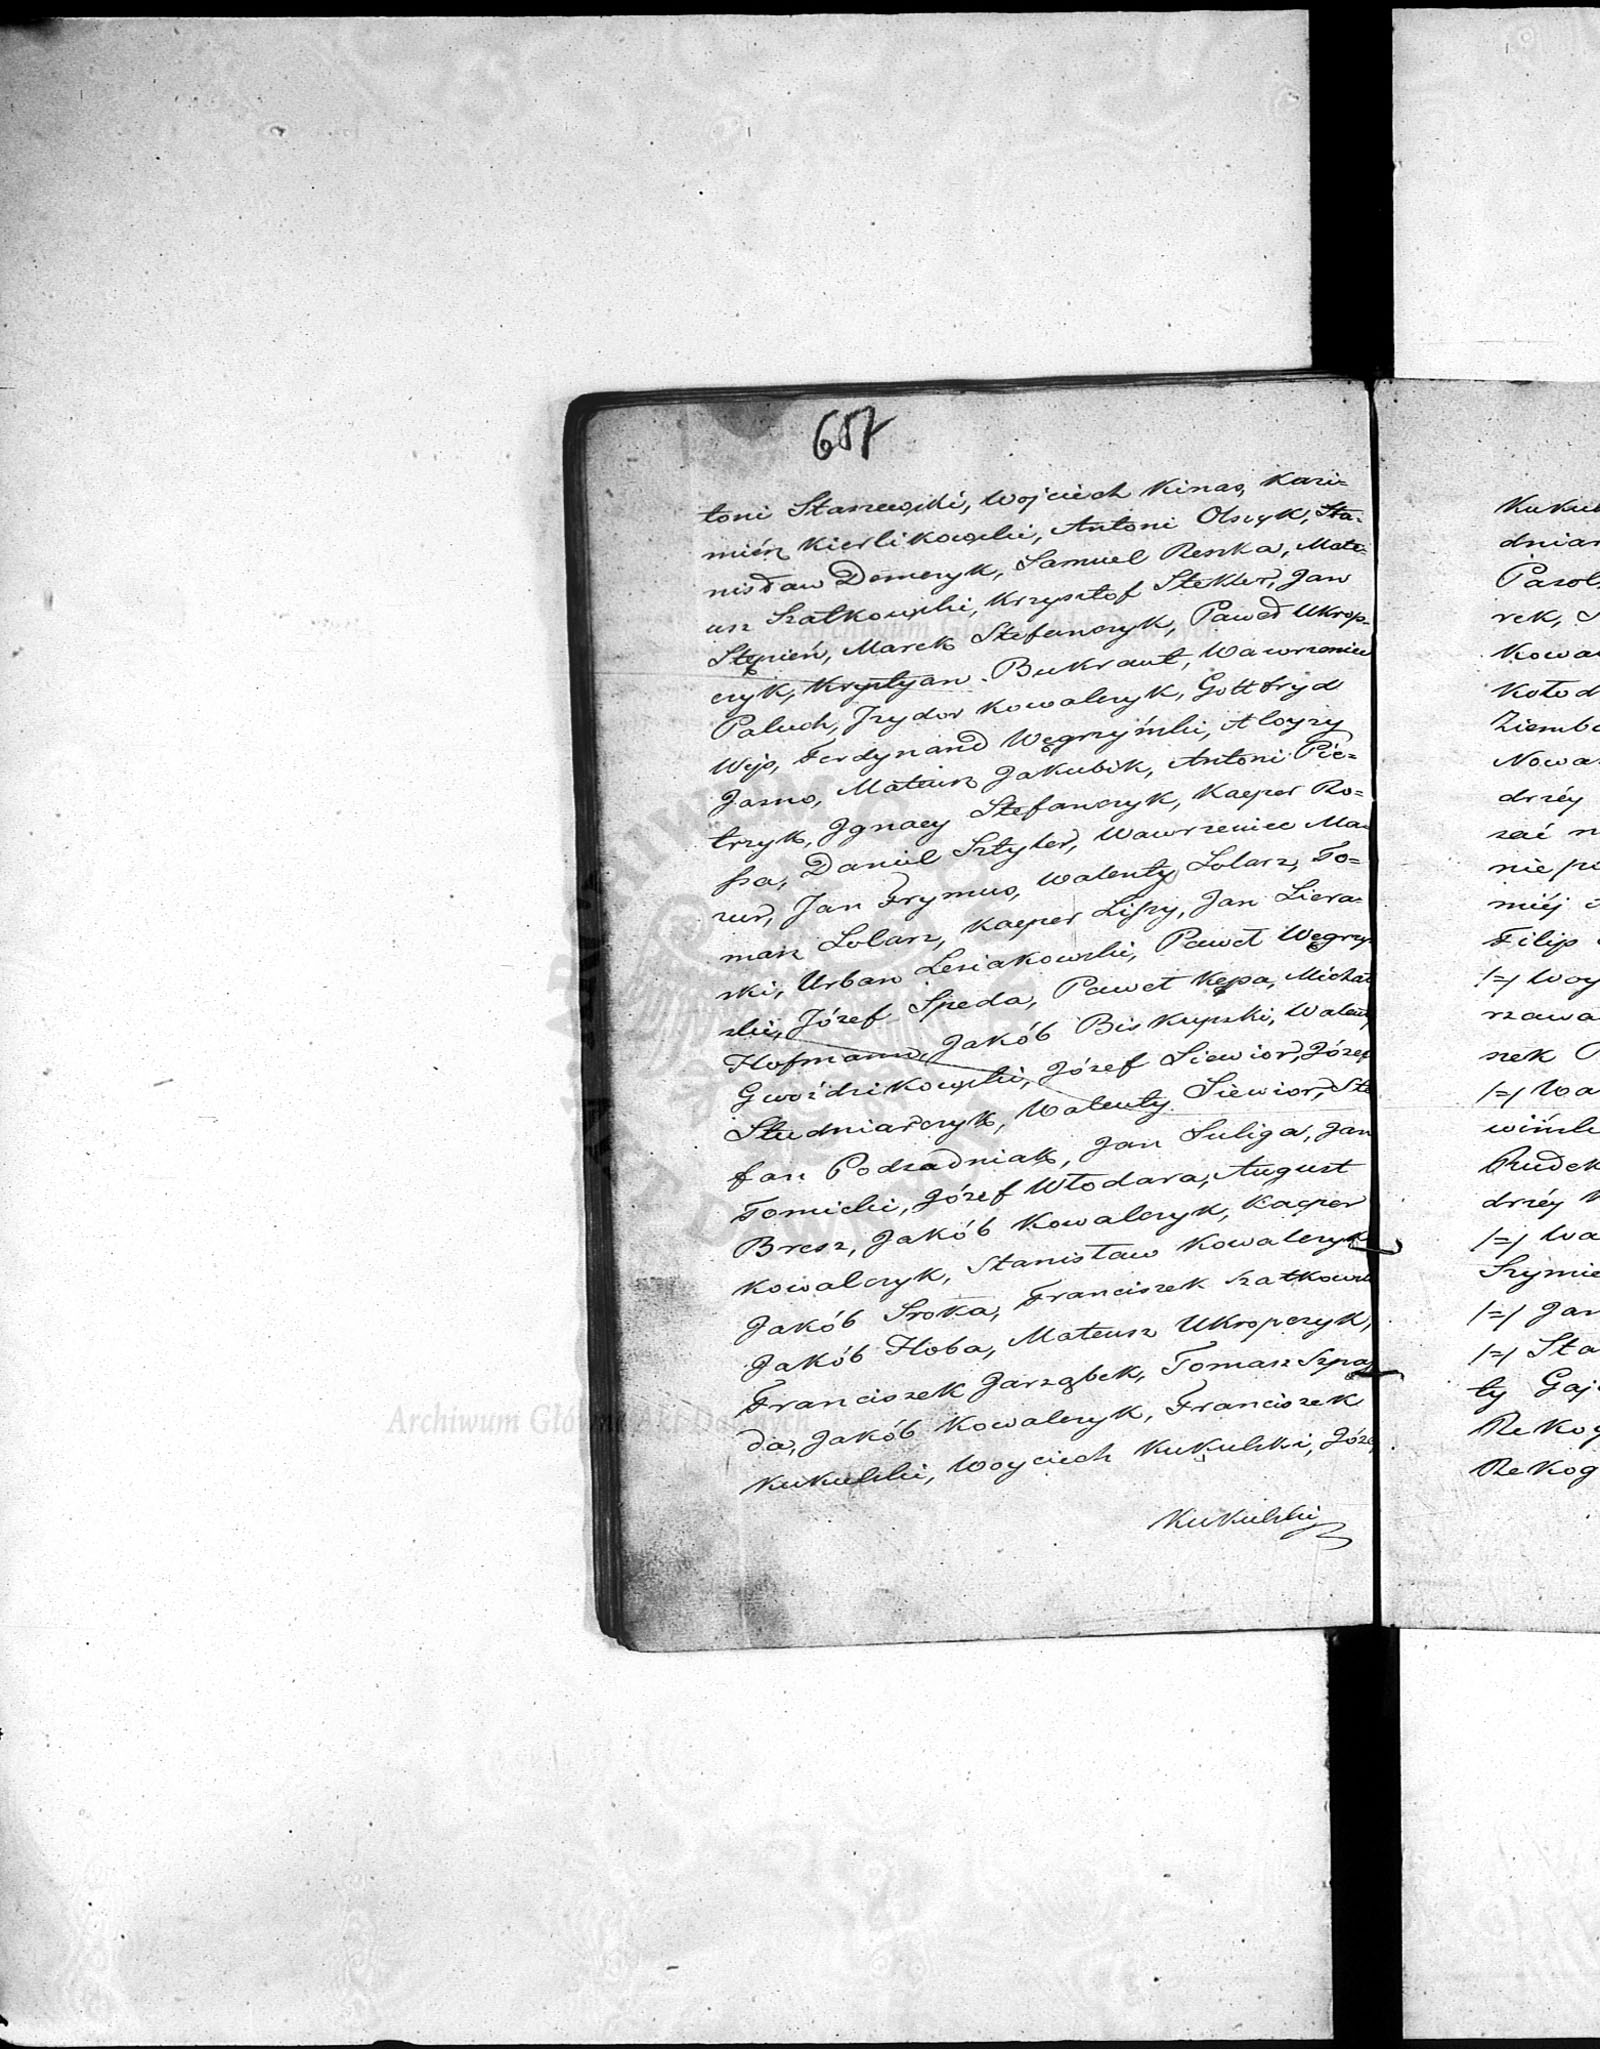 657
toni Staszewski, Wojciech Kinas, Kazi=
mierz Kierlikowski, Antoni Olszyk, Sta-
nisław Demczyk, Samuel Reszka, Mate-
usz Szatkowski, Krzysztof Stekler, Jan
Stępień, Marek Stefanczyk, Paweł Ukrop-
czyk, Krystyan Bukraut, Wawrzeniec
Paluch, Jzydor Kowalczyk, Gottfryd
Wejs, Ferdynand Węgrzyński, Aloyzy
Jasno, Mateusz Jakubik, Antoni Pie=
trzyk, Jgnacy Stefanczyk, Kacper Ro=
ssa, Daniel Sztyler, Wawrzeniec Ma-
zur, Jan Frymus, Walenty Lolarz, To=
masz Lolarz, Kacper Lissy, Jan Siera-
ski, Urban Lesiakowski, Paweł Węgrzy
ski, Józef Speda, Paweł Kępa, Michał
Hofmann, Jakób Biskupski, Walenty
Gwoździkowski, Józef Siewior, Józef
Studniarczyk, Walenty Siewior, Ste
fan Podsadniak, Jan Suliga, Jan
Tomicki, Józef Włodara, August
Bresz, Jakób Kowalczyk, Kacper
Kowalczyk, Stanisław Kowalczyk
Jakób Sroka, Franciszek Szatkowski
Jakób Hoba, Mateusz Ukropczyk,
Franciszek Jarząbek, Tomasz Szpa
da, Jakób Kowalczyk, Franciszek
Kukulski, Woyciech Kukulski, Józe
Kukulski
Kukul
dnia
Pasol
rek, S
Kowa
Kołod
Ziemb
Nowa
drzéy
zać n
nie po
miéj
Filip
/=/ Woy
rzawa
szek
/=/ Wa
wińsk
Rudek
drzéy
/=/ Wa
Szymie
/=/ Jan
/=/ Sta
ty Gaj
Rekog
Rekog
Archiwum Główne Akt Dawnych